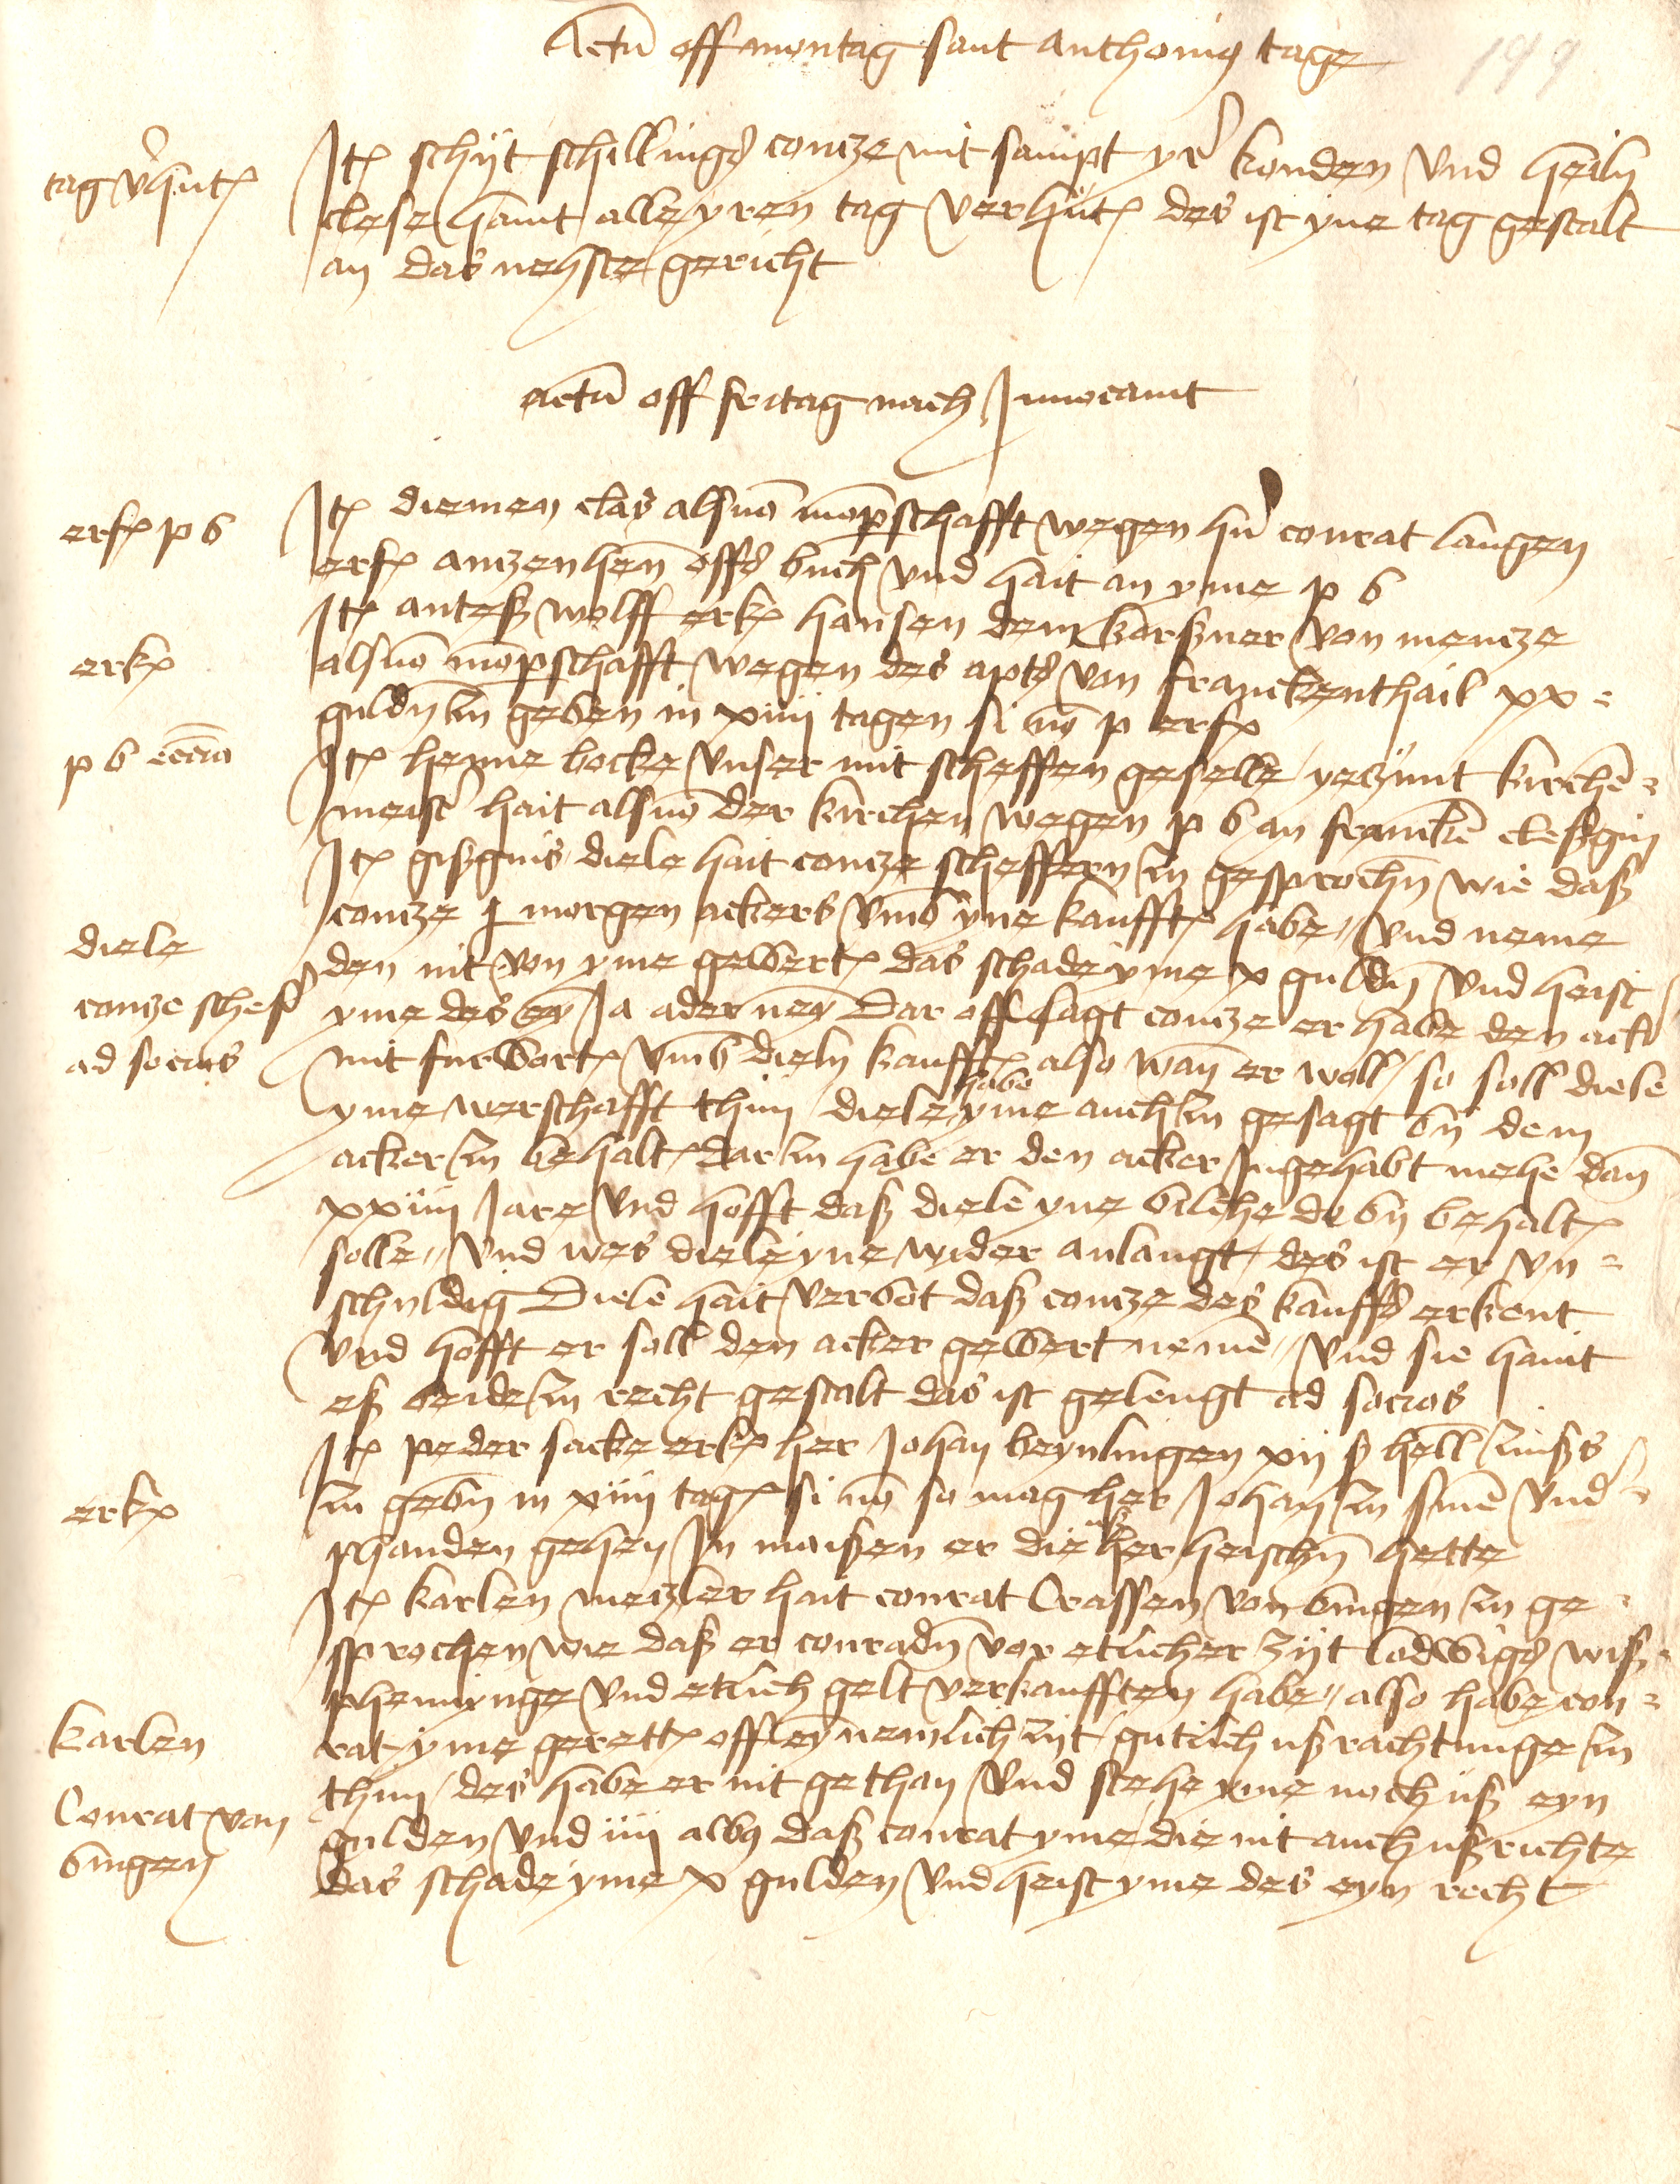 Actu(m) off montag sant Anthonig tage
199
tag v(er)hut(en)
It(em) schijt schillings contze mit sampt yr(e)n konden und heiln
clese haint alle yren tag verhut(en) des ist yne tag gestalt
an das nehste gericht
Actu(m) off fritag nach Invocavit
erf(olgt) p b
It(em) diemen clas als vo(n) mo(m)perschafft wegen h(er)n conrat langen
erf(olgt) antzenhen(n) off(s) buch und hait an yme p b
It(em) anteß wolff erk(ent) hansen dem korßner von mentze
erk(ent)
als vo(n) mo(m)perschafft wegen des apts von franckenthail xx
guld(e)n zu geben in xiiii tagen si no(n) p erf(olgt)
p b ecc(lesi)a
It(em) henne bocke unser mit scheffen geselle yetzunt kirche(n)
meist(er) hait als vo(n) der kirchen wegen p b an francke(n) cleßgin
It(em) gißgins diele hait contze scheffern zu gesproch(e)n wie daß
contze j morgen ackers umb yne kaufft habe und neme
diele
den nit von yme gewert das schade yme x guld(e)n und heist
contze scheff(er)
yme des ey(n) Ja ader ney(n) Dar off sagt contze er habe den ack(er)
ad socios
mit furwort(en) umb dieln kaufft also wan(n) er woll so soll diele
yme werschafft thun diele habe yme auch zu gesagt by dem
acker zu behalt(en) dar zu habe er den acker Ingehabt mehe dan(n)
xxiiii Jare und hofft daß diele yne bilche do by behalt(en)
solle und wes diele yne wider anlangt des ist er un
schuldig Diele hait verbot daß contze des kauffs erkent
und hofft er soll den acker gewert neme(n) und sie haint
eß beide zu recht gestalt das ist gelengt ad socios
It(em) peder sacke erk(ent) her Johan beynlingen xij ß hell(er) zinßs
erk(ent)
zu geb(e)n in xiiii tag(en) si no(n) so mag her Johan zu sine(n) und(er)
phanden gehen In maißen er die uß her heisch(e)n hette
It(em) karlen metzler hait conrat Crassen von bingen zu ge
sprochen wie daß er conrad(e)n vor etlicher zijt lodwigs wiß
phennynge und etlich gelt verkaufften habe also habe con
karlen
rat yme gerett off ey(n) nemlich zijt gutlich ußrachtunge zu
thun des habe er nit gethan und stehe yme noch uß eyn
Conrat von
gulden und iiii alb(us) daß conrat yme die nit auch ußrichte
bingen
das schade yme x gulden und heist yme des eyn recht